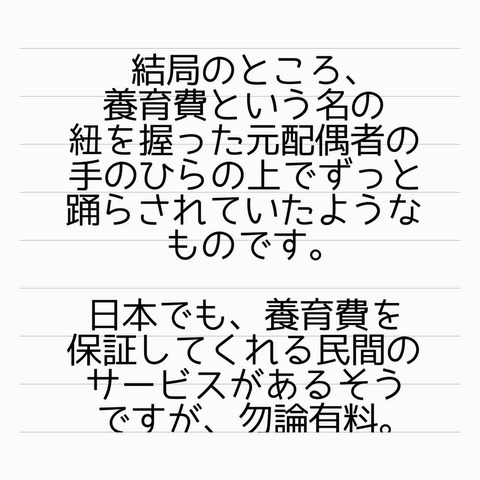 結局のところ、
養育費という名の
紐を握った元配偶者の
手のひらの上でずっと
踊らされていたような
ものです。
日本でも、養育費を
保証してくれる民間の
サービスがあるそう
ですが、勿論有料。